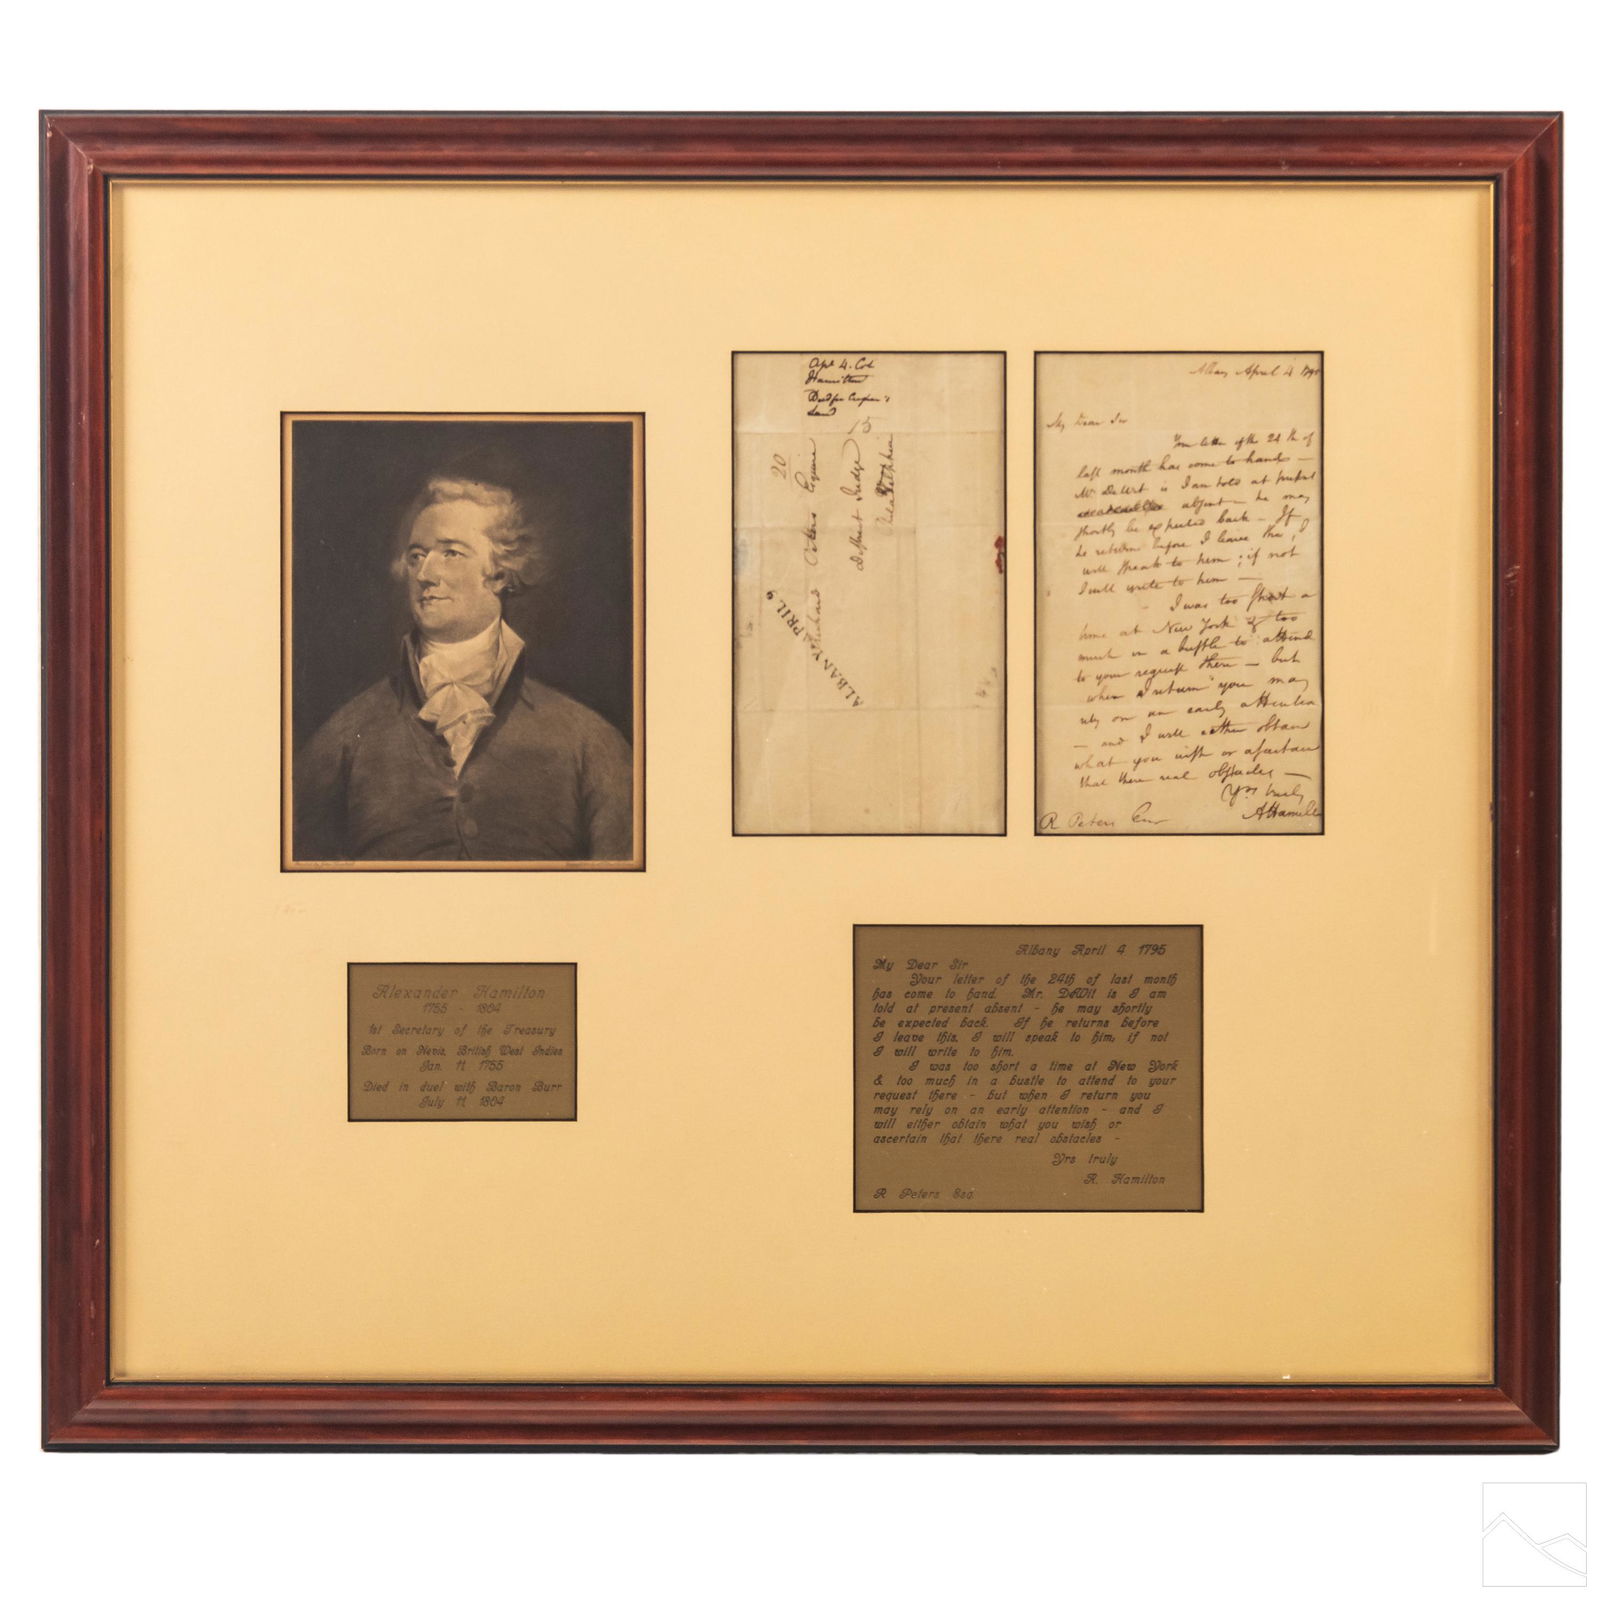 Apl 4. Col
Hamilton
Land
15
20
Richard Peters Esquire
District Judge
Philadelphia
ALBANY APRIL 9
Albany April 4 1795
My Dear Sir
Your letter of the 24th of
last month has come to hand —
Mr. DeWit is I am told at present
absent — he may
shortly be expected back — If
he returns before I leave this, I
will speak to him; if not
I will write to him —
I was too short a
time at New York & too
much in a bustle to attend
to your request there — but
when I return you may
rely on an early attention
— and I will either obtain
what you wish or ascertain
that there real obstacles —
Yrs truly
A Hamilton
R Peters Esqr
Alexander Hamilton
1755 - 1804
1st Secretary of the Treasury
Born on Nevis, British West Indies
Jan. 11 1755
Died in duel with Baron Burr
July 11 1804
Albany April 4 1795
My Dear Sir
Your letter of the 24th of last month
has come to hand. Mr. DeWit is I am
told at present absent - he may shortly
be expected back. If he returns before
I leave this, I will speak to him; if not
I will write to him.
I was too short a time at New York
& too much in a bustle to attend to your
request there - but when I return you
may rely on an early attention - and I
will either obtain what you wish or
ascertain that there real obstacles -
Yrs truly
A. Hamilton
R Peters Esq.